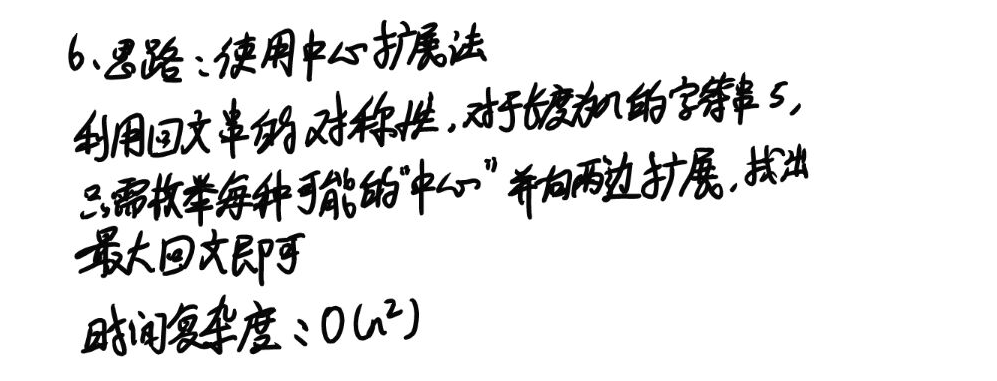 6、思路：使用中心扩展法
利用回文串的对称性，对于长度为n的字符串s，
只需枚举每种可能的“中心”并向两边扩展，找出
最大回文即可
时间复杂度：O(n²)